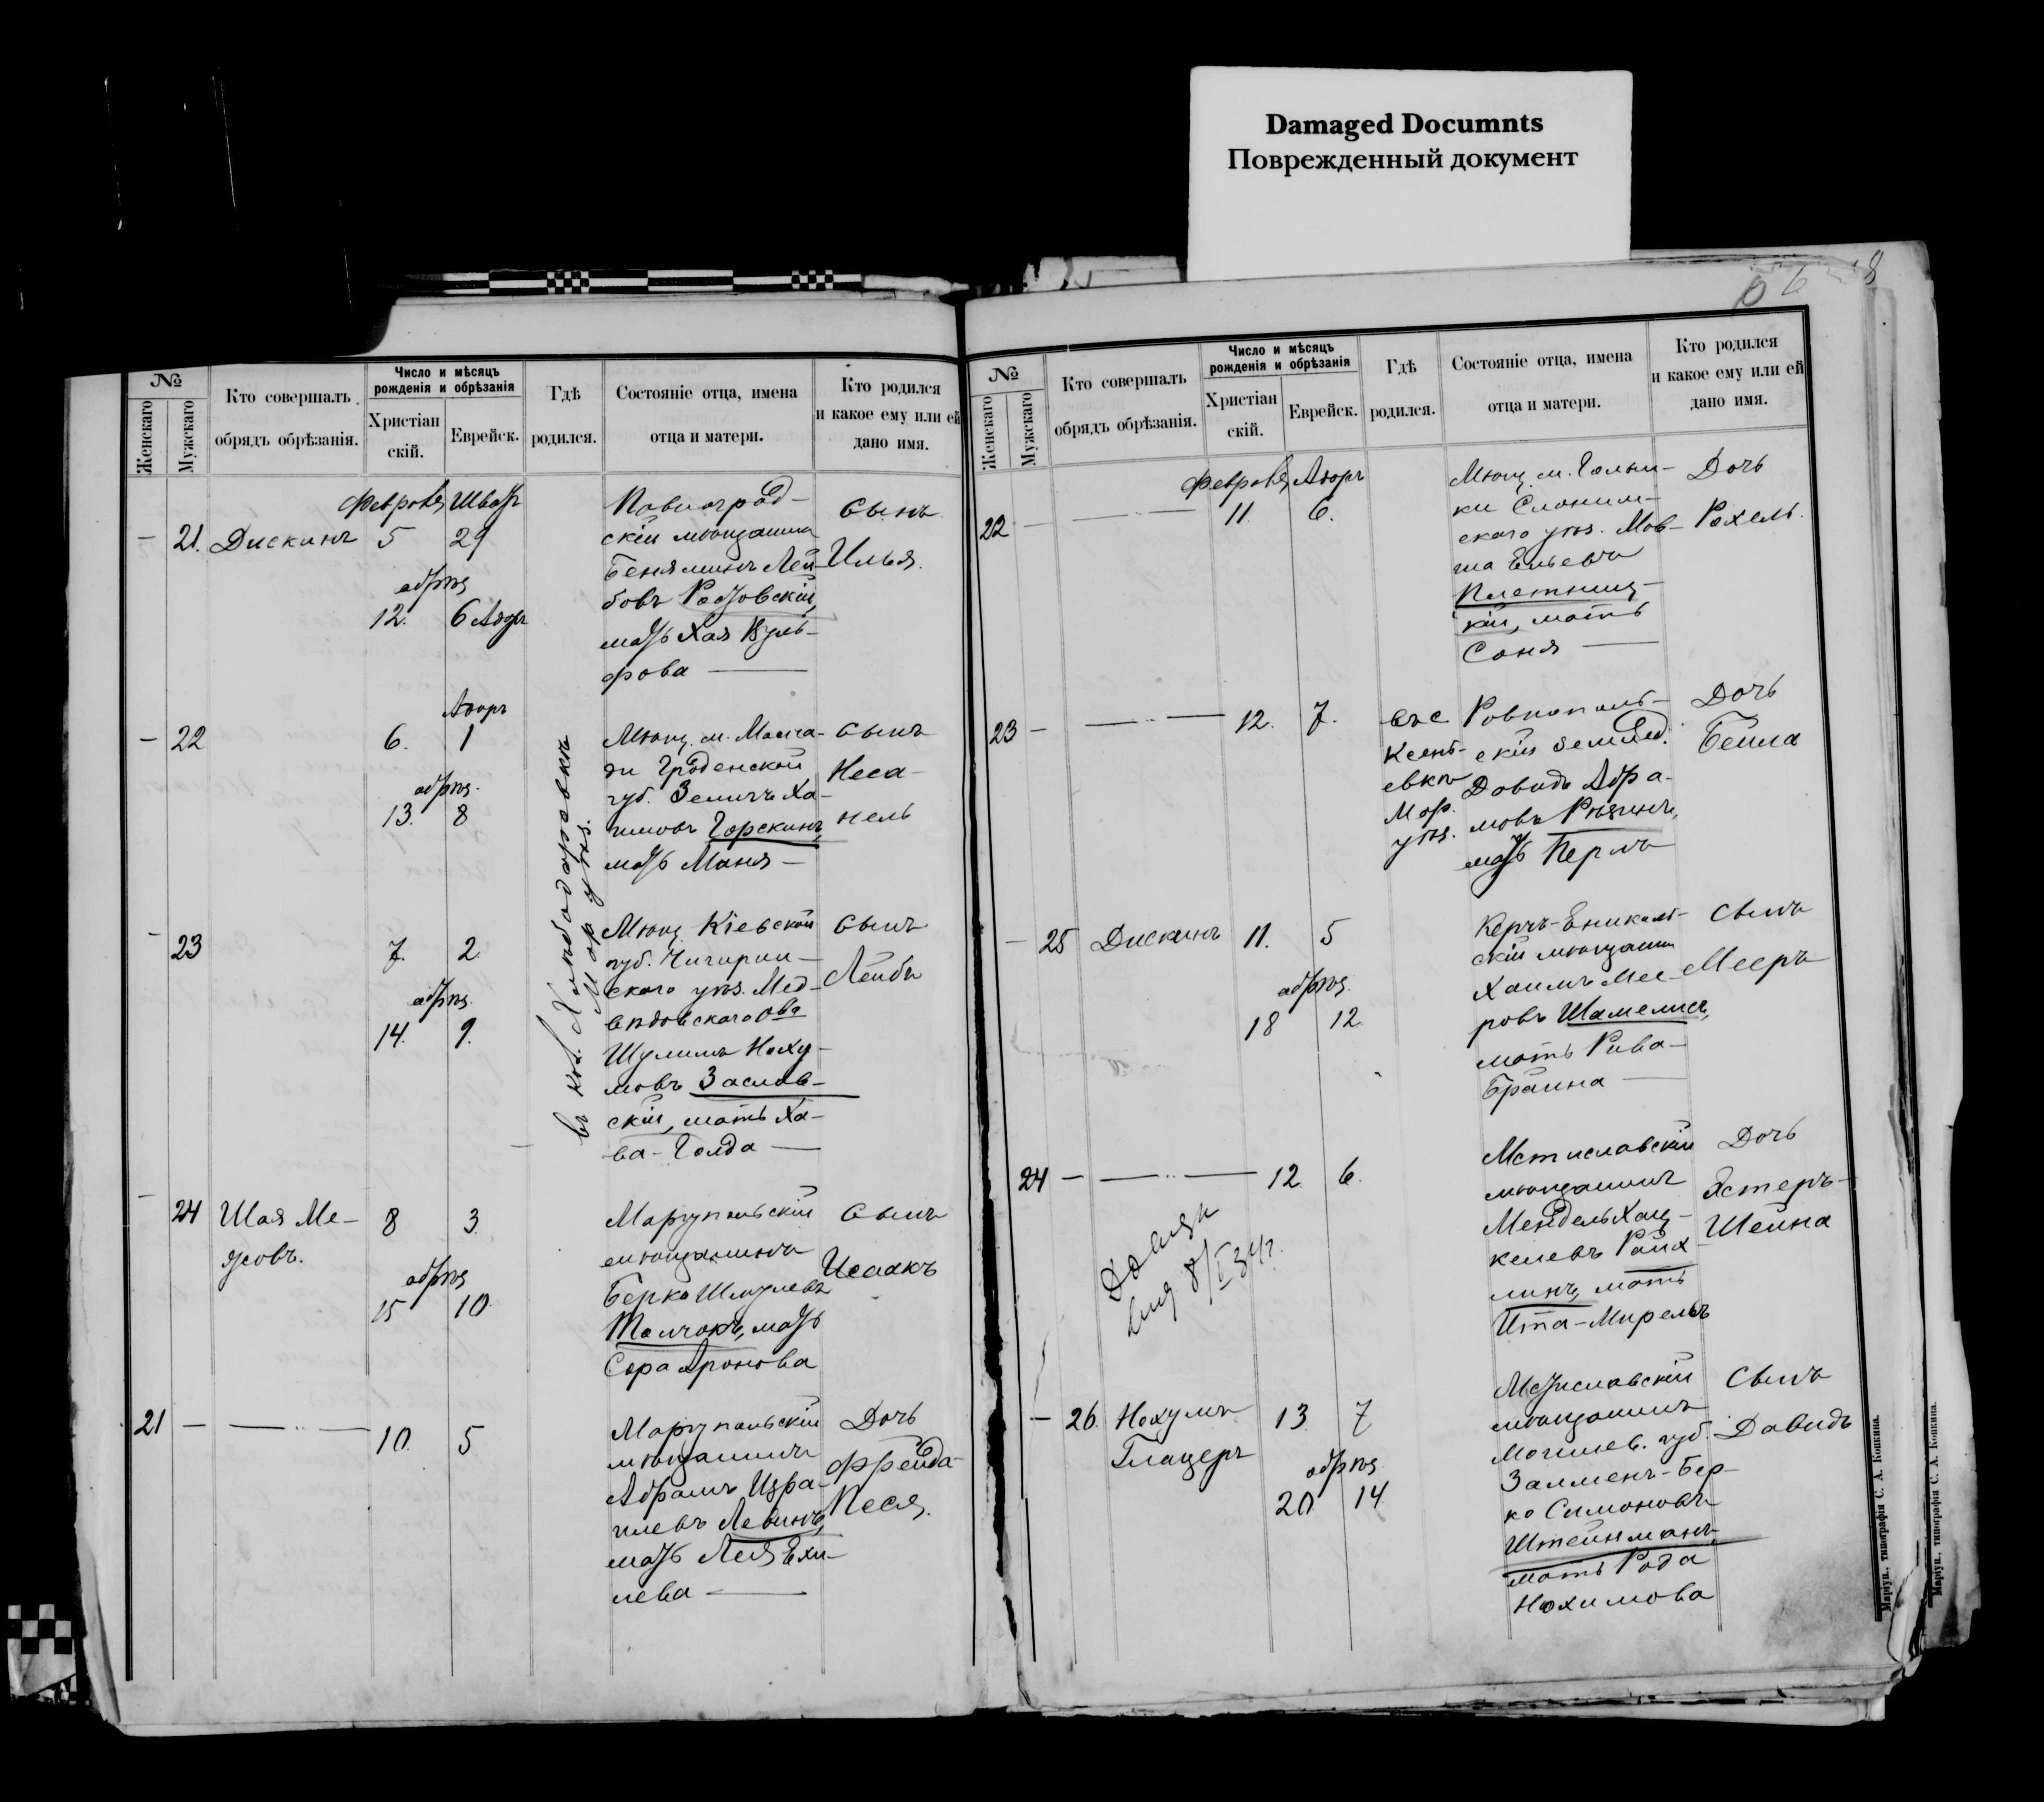 Damaged Documnts
Поврежденный документ
№
Женскаго
Мужскаго
Кто совершалъ
обрядъ обрѣзанія.
Число и мѣсяцъ
рожденія и обрѣзанія
Христіан
скій.
Еврейск.
Гдѣ
родился.
Состояніе отца, имена
отца и матери.
Кто родился
и какое ему или ей
дано имя.
Февраля Шватъ
— 21. Дискинъ 5 29
обрѣз
12. 6 Адаръ
Павлоград-
скій мѣщанинъ
Беняминъ Лей-
бовъ
мать Хая
Сынъ
Илья.
Адаръ
— 22 6. 1
обрѣз.
13. 8
Мѣщ. м. Молча-
ди Гроденской
губ. Зеликъ Ха-
имовъ Горскинъ,
мать Маня —
Сынъ
Неса-
нель
— 23 7. 2
обрѣз.
14. 9.
Мѣщ. Кіевской
губ. Чигирин-
скаго уѣз. Мед-
вѣдовскаго ова
Шулимъ Наху-
мовъ Заслав-
скій, мать Ха-
ва-Голда —
Сынъ
Лейба
— 24 Шая Ме- 8 3.
обрѣз
15 10.
Маріупольскій
мѣщанинъ
Берка Шмулевъ
Толчокъ, мать
Сора Аронова
Сынъ
Исаакъ
21 — — „ — 10. 5
Маріупольскій
мѣщанинъ
Абрамъ Изра-
илевъ Левинъ,
мать Лея Ехи-
лева —
Дочь
Фрейда-
Песя.
въ кол.
Мар уѣз.
№
Женскаго
Мужскаго
Кто совершалъ
обрядъ обрѣзанія.
Число и мѣсяцъ
рожденія и обрѣзанія
Христіан
скій.
Еврейск.
Гдѣ
родился.
Состояніе отца, имена
отца и матери.
Кто родился
и какое ему или ей
дано имя.
Февраля Адаръ
22 — — „ — 11. 6.
Мѣщ. м. Голын-
ки Слоним-
скаго уѣз. Мов-
ша Ельевъ
Плетниц-
кій, мать
Соня —
Дочь
Рохель.
23 — — „ — 12. 7.
въ с
Мар.
уѣз.
Ровнополь-
скій землед.
Довидъ Абра-
мовъ
мать Перль
Дочь
Бейла
— 25 Дискинъ 11. 5
обрѣз.
18 12.
Керчь-Еникаль-
скій мѣщанин
Хаимъ Мее-
ровъ Шамелисъ,
мать Рива-
Брайна —
Сынъ
Мееръ
24 — — „ — 12. 6.
Мстиславскій
мѣщанинъ
Мендель Хац-
келевъ Райх
линъ, мать
Ита-Мирель
Дочь
Эстеръ-
Шейна
— 26. Нохумъ 13. 7
Глацеръ
обрѣз
20 14.
Мстиславскій
мѣщанинъ
Могилев. губ.
Залменъ-Бер-
ко Симоновъ
Штейнманъ,
мать Рода
Нохимова
Сынъ
Давидъ
Маріуп., типографія С. А. Копкина.
Маріуп., типографія С. А. Копкина.